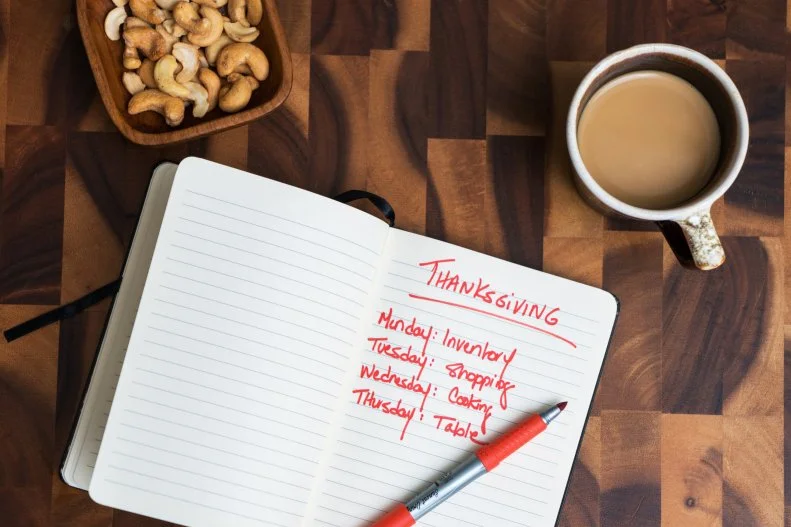 THANKSGIVING
Munday: Inventory
Tuesday: Shopping
Wednesday: Cooking
THursday: Table